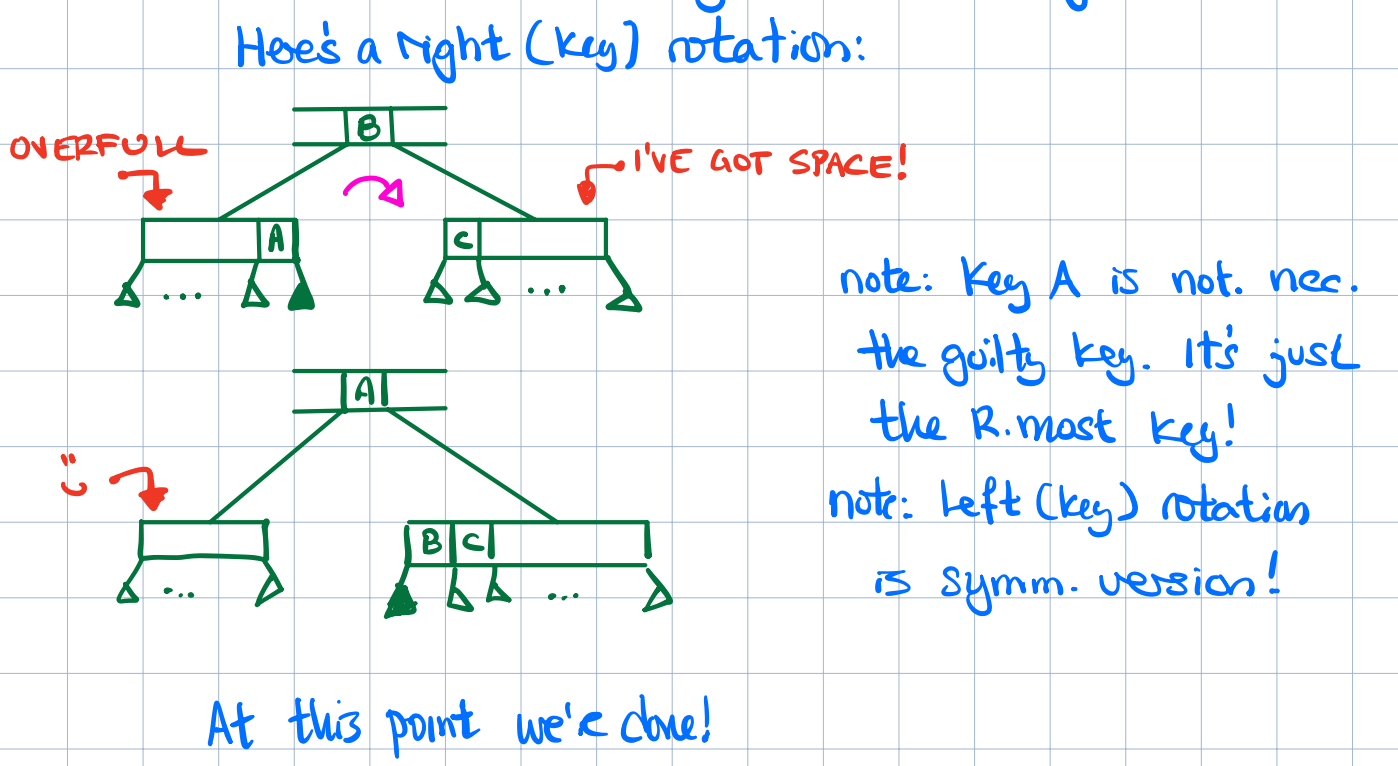 Here's a right (key) rotation:
B
OVERFULL
I'VE GOT SPACE!
A
C
...
...
note: Key A is not. nec.
the guilty key. It's just
the R.most key!
A
note: Left (key) rotation
B C
is symm. version!
...
...
At this point we're done!